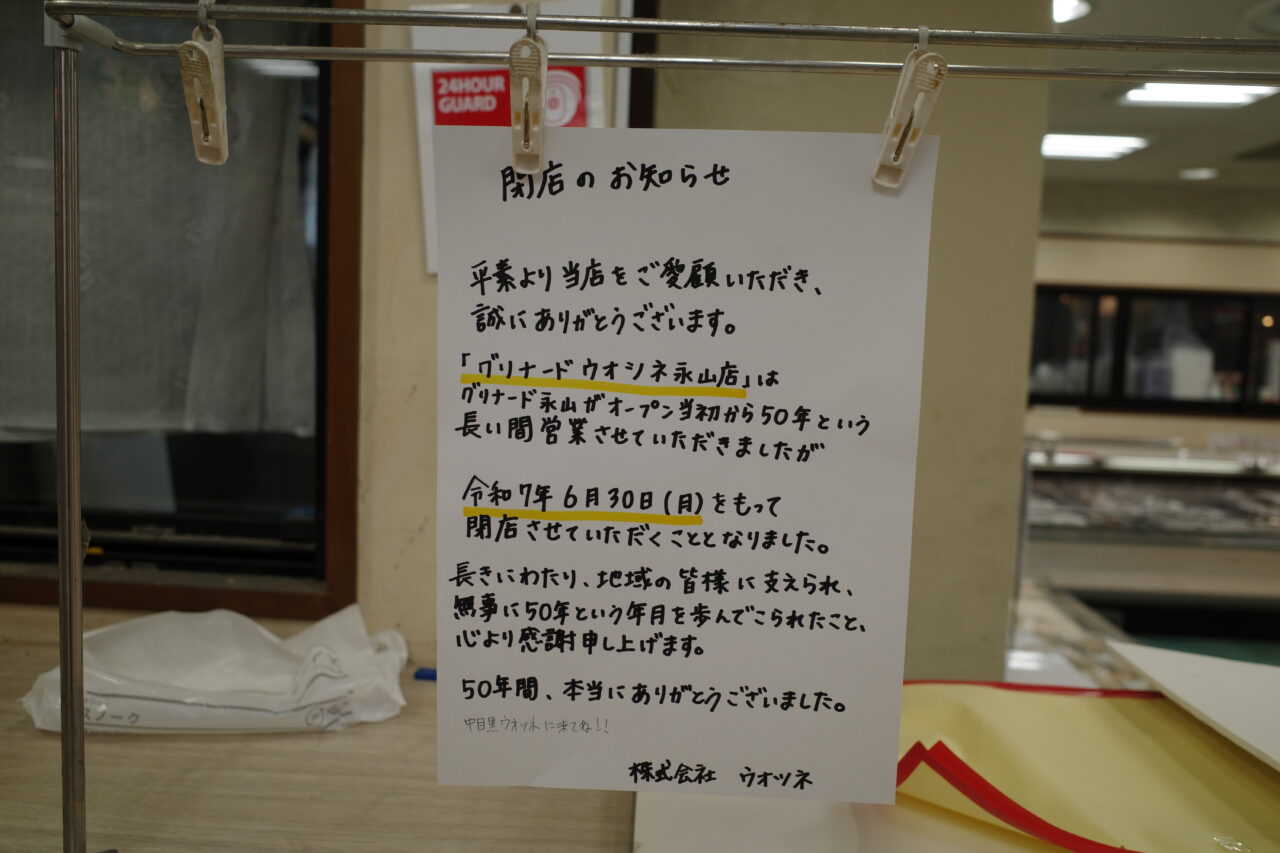 24HOUR
GUARD
閉店のお知らせ
平素より当店をご愛顧いただき、
誠にありがとうございます。
「グリナードウオシネ永山店」は
グリナード永山がオープン当初から50年という
長い間営業させていただきましたが
令和7年6月30日(月)をもって
閉店させていただくこととなりました。
長きにわたり、地域の皆様に支えられ、
無事に50年という年月を歩んでこられたこと、
心より感謝申し上げます。
50年間、本当にありがとうございました。
中目黒ウオツネに来てね!!
株式会社 ウオツネ
スノーク